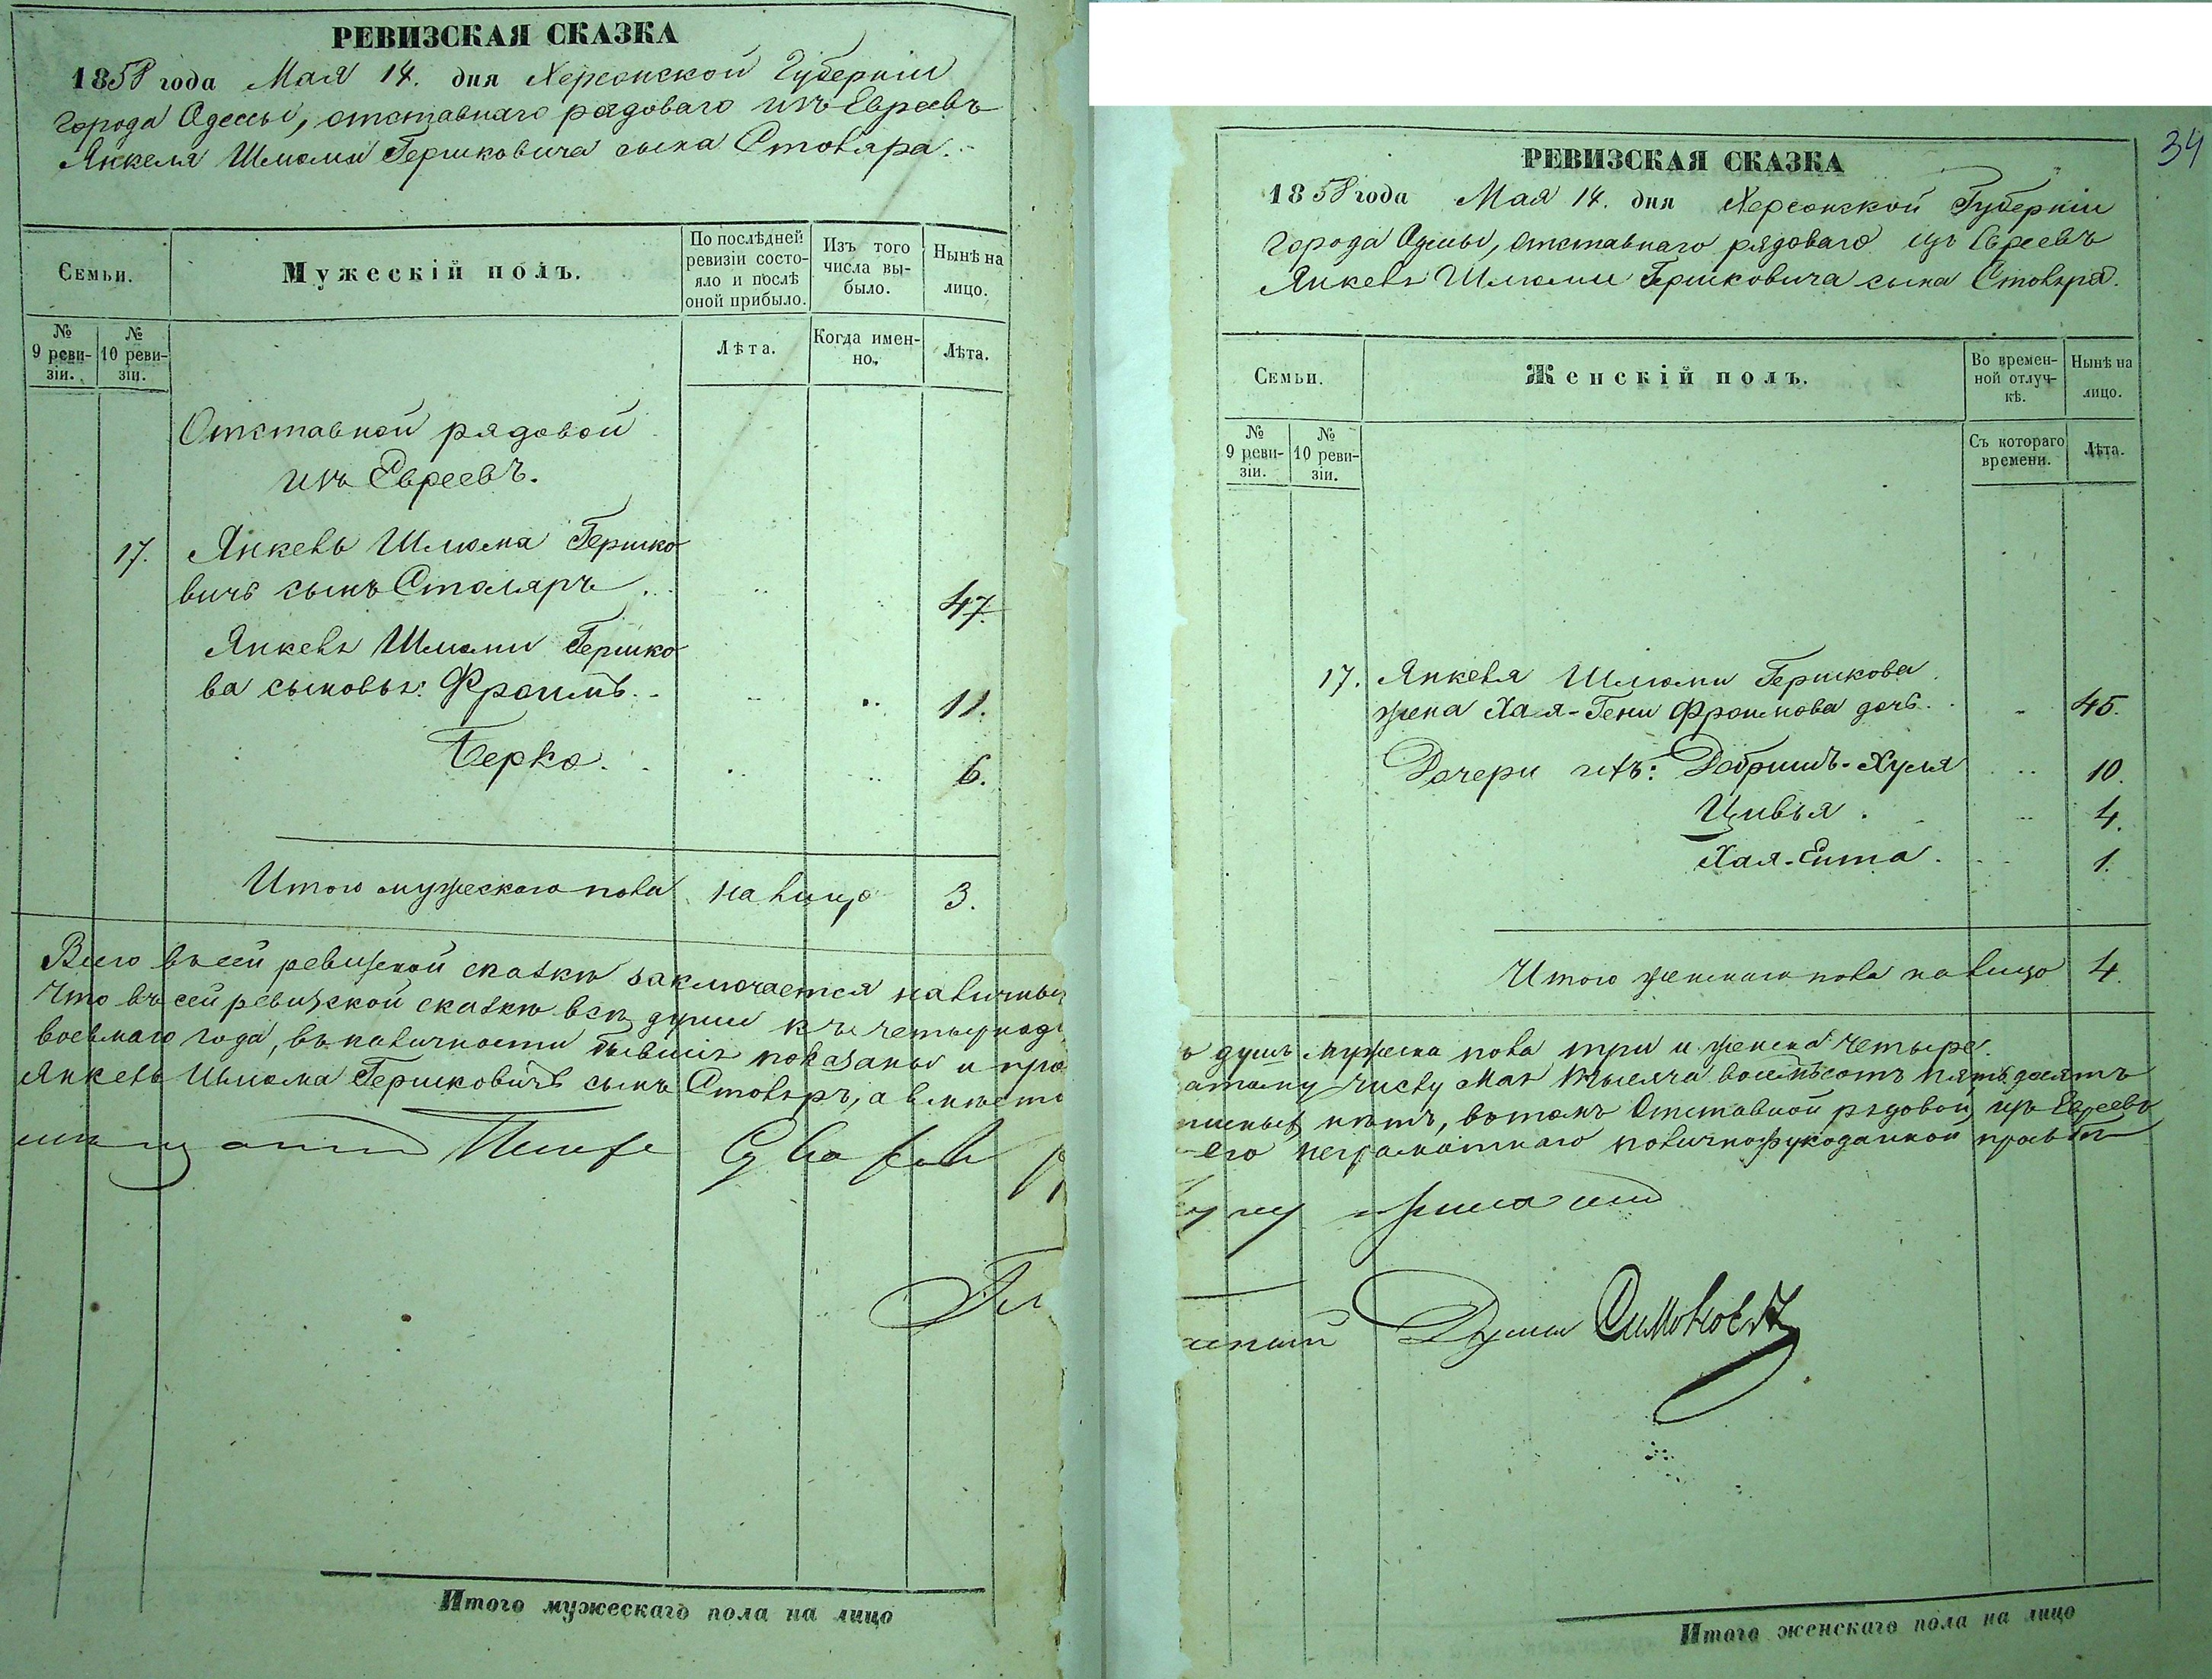 РЕВИЗСКАЯ СКАЗКА
1858 года Мая 14. дня Херсонской Губерніи
города Одессы, отставнаго рядоваго изъ Евреевъ
Янкеля Шлюмы Гершковича сына Столяра.
Семьи.
Мужескій полъ.
По послѣдней ревизіи состояло и послѣ оной прибыло.
Изъ того числа выбыло.
Нынѣ на лицо.
№ 9 ревизіи.
№ 10 ревизіи.
Лѣта.
Когда именно.
Лѣта.
Отставной рядовой
изъ Евреевъ.
17. Янкель Шлюма Гершко
вичъ сынъ Столяръ 47.
Янкеля Шлюмы Гершко
ва сыновья: Фроимъ. 11.
Берко. 6.
Итого мужескаго пола на лицо 3.
Всего въ сей ревизской сказкѣ заключается наличных
Что въ сей ревизской сказкѣ всѣ души къ четырнад
восьмаго года, въ наличности бывшія показаны и про
Янкель Шлюма Гершковичъ сынъ Столяръ, а вмѣсто
Итого мужескаго пола на лицо
34
РЕВИЗСКАЯ СКАЗКА
1858 года Мая 14. дня Херсонской Губерніи
города Одессы, отставнаго рядоваго изъ Евреевъ
Янкеля Шлюмы Гершковича сына Столяра.
Семьи.
Женскій полъ.
Во временной отлучкѣ.
Нынѣ на лицо.
№ 9 ревизіи.
№ 10 ревизіи.
Съ котораго времени.
Лѣта.
17. Янкеля Шлюмы Гершкова
жена Хая-Гени Фроимова дочь. 45.
Дочери ихъ: Добришъ-Хуля 10.
Цивья. 4.
Хая-Еита. 1.
Итого женскаго пола на лицо 4.
душъ мужеска пола три и женска четыре.
атому числу Мая тысяча восемьсотъ пятьдесятъ
писныхъ нѣтъ, въ томъ Отставной рядовой изъ Евреевъ
его неграмотнаго по личной рукоданной прозьбѣ
Думы Симонов
Итого женскаго пола на лицо